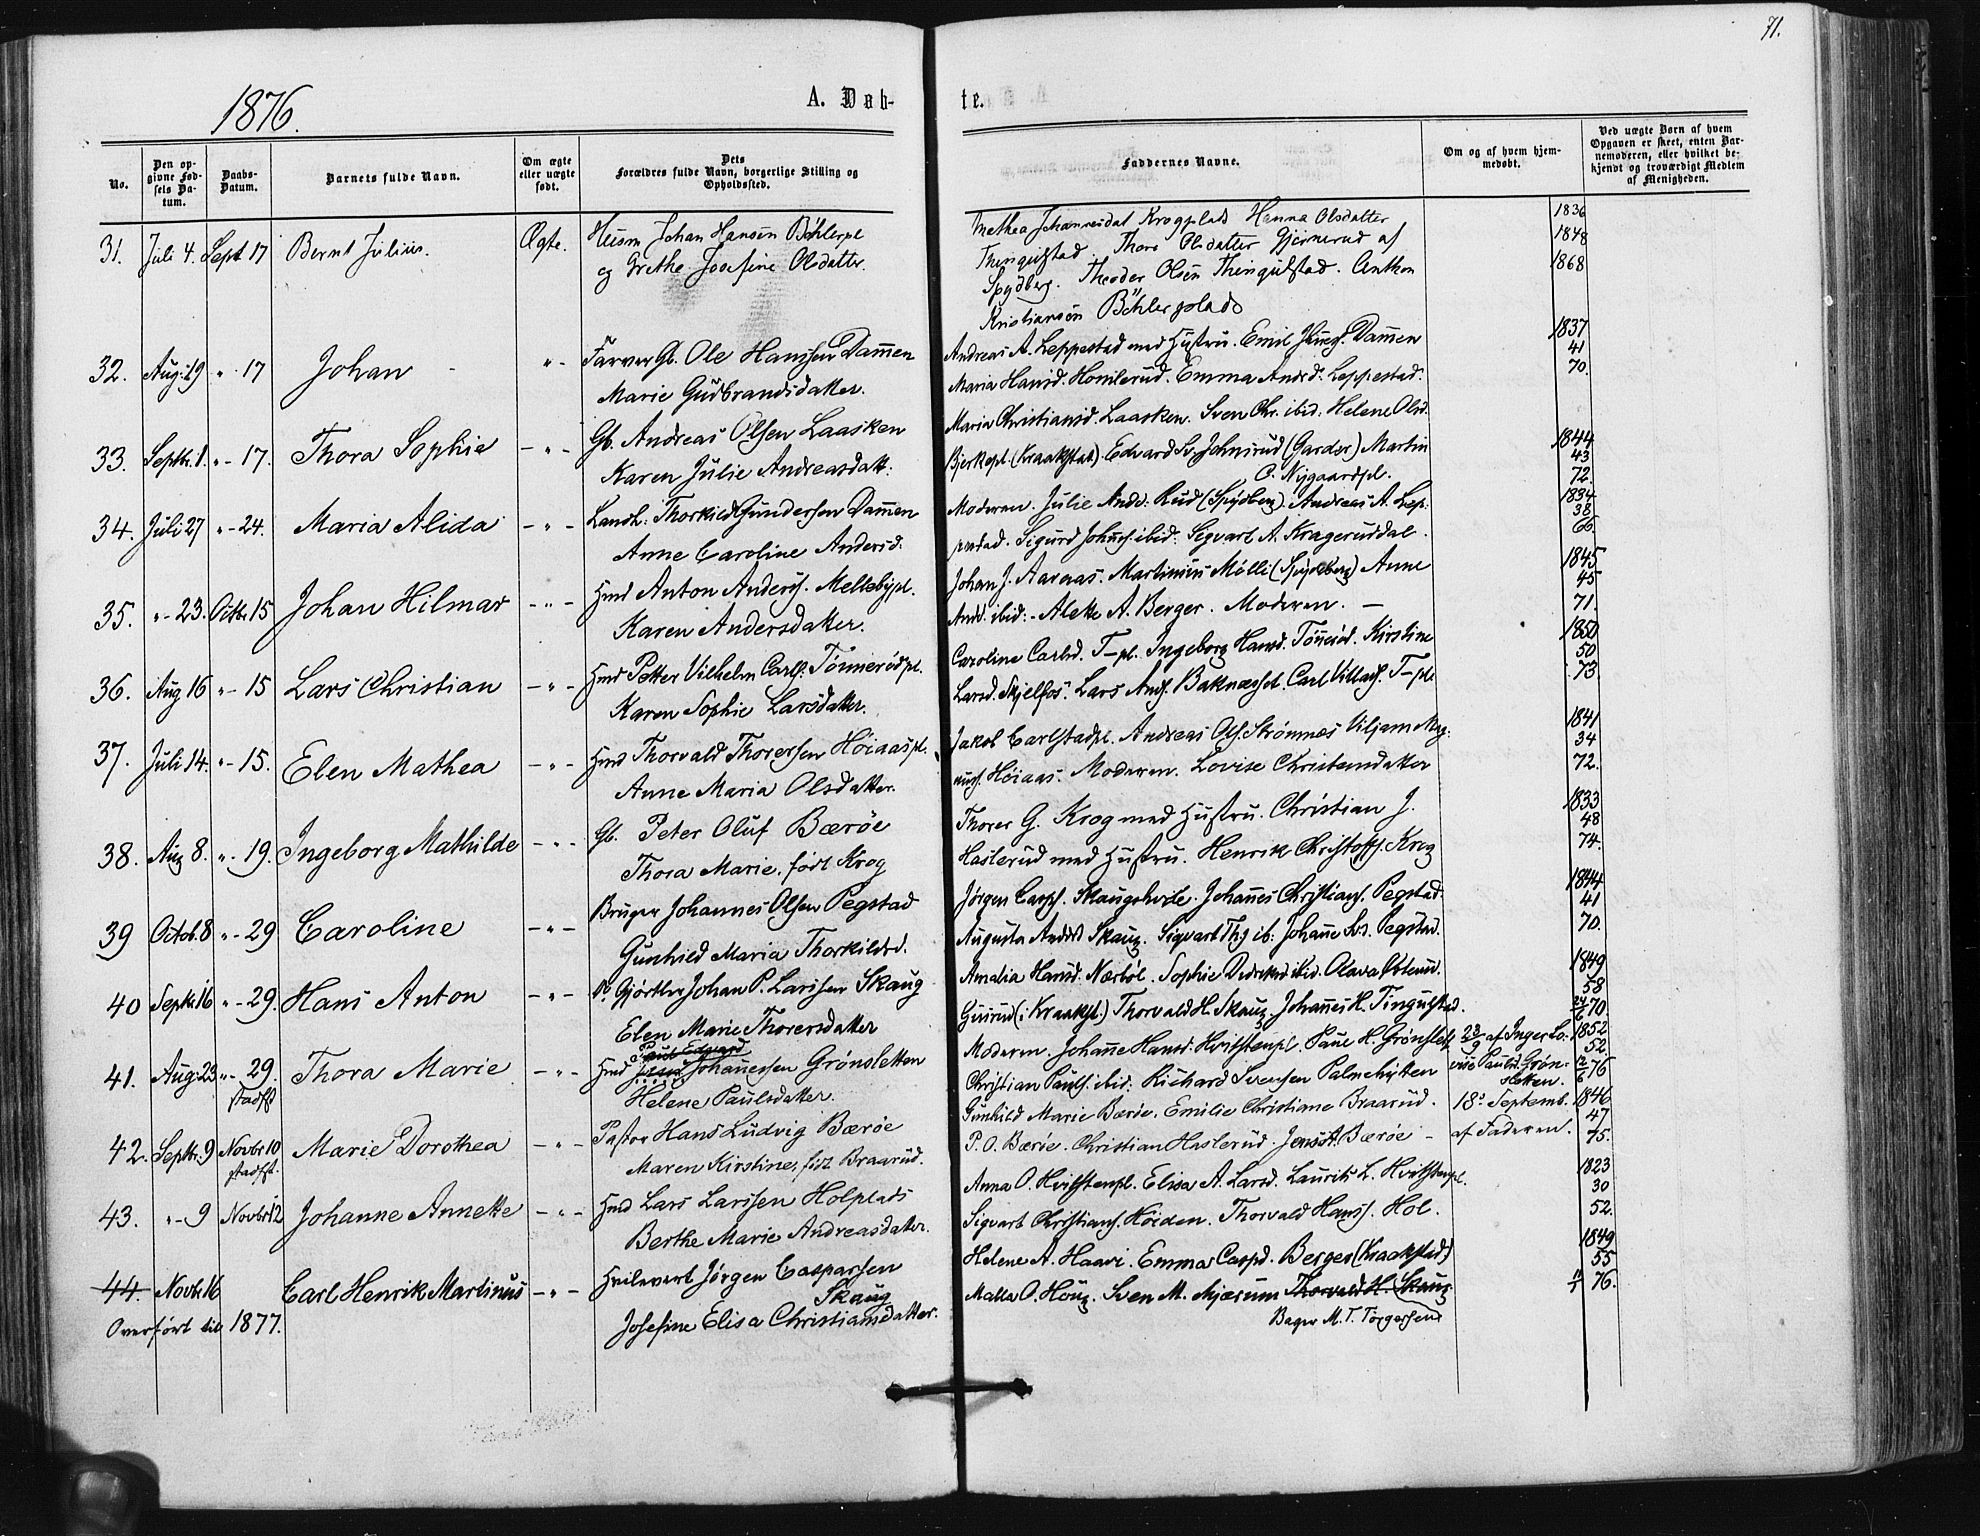 71.
1876.
A. Døb-
te.
No.
Den op-
givne Fød-
sels Da-
tum.
Daabs-
Datum.
Barnets fulde Navn.
Om ægte
eller uægte
født.
Dets
Forældres fulde Navn, borgerlige Stilling og
Opholdssted.
Faddernes Navne.
Om og af hvem hjem-
medøbt.
Ved uægte Børn af hvem
Opgaven er skeet, enten Bar-
nemoderen, eller hvilket be-
kjendt og troværdigt Medlem
af Menigheden.
31. Juli 4. Sept 17 Bernt Julius. Ægte. Husm Johan Hansen Böhlerpl
og Grethe Josefine Olsdatter.
Methea Johannesdat Krogplads Hanna Olsdatter 1836
Thingulstad. Thora Olsdatter Gjernerud af 1848
Spydberg. Theodor Olsen Thingulstad. Anthon 1868
Kristiansen Böhlerplads
32. Aug: 19 "- 17 Johan - "- Farver Gb. Ole Hansen Dammen
Marie Gudbrandsdatter.
Andreas A. Leppestad med Hustru. Emil Dammen 1837
41
Maria Hansd. Homlerud. Emma Andrd. Leppestad. 70.
33. Septbr. 1. "- 17. Thora Sophie - " - Gb. Andreas Olsen Laasken
Karen Julie Andreasdatt:
Maria Christiansd. Laasken. Sven Chr. ibid. Helene Olsd.
Bjerkepl. (Kraakstad). Edvard Sv. (Garder) Martin 1844
43
O. Nygaardpl. 72.
34. Juli 27 "- 24. Maria Alida - " - Landh. Thorkild Gundersen Dammen
Anne Caroline Andersd.
Moderen. Julie Andd. Rud (Spydberg). Andreas A. Lep- 1834
38
pestad. Sigurd Johns. ibid. Sigvart A. Krageruddal. 66.
35. "- 23. Octbr 15 Johan Hilmar - " - Hmd Anton Anders. Mellebypl.
Karen Andersdatter.
Johan J. Aaraas. Martinius Mölli (Spydberg) Anne 1845
45
Andd. ibid. - Alette A. Berger. Moderen. - 71.
36. Aug 16 "- 15 Lars Christian - " - Hmd Petter Vilhelm Carls. Tönnerödpl.
Karen Sophie Larsdatter.
Caroline Carlsd. T-pl. Ingeborg Hansd. Kirstine 1850
50
Larsd. Skjelfos. Lars Ands. Carl T-pl. 73.
37. Juli 14. "- 15. Elen Mathea - " - Hmd Thorvald Thorersen Höiaaspl.
Anne Maria Olsdatter.
Jakob Carlstadpl. Andreas Ols. Strömnæs Viljam Mag- 1841
34
nus. Höiaas. Moderen. Lovise Christensdatter 72.
38. Aug 8. "- 19. Ingeborg Mathilde - " - Gb. Peter Oluf Bæröe
Thora Marie, født Krog
Thorer G. Krog med Hustru. Christian J. 1833
48
Haslerud med Hustru. Henrik Christoffs. Krog 74.
39 Octob. 8 "- 29 Caroline - " - Bruger Johannes Olsen Pegstad
Gunhild Maria Thorkildsd.
Jörgen Casps. Skaugshvile. Johannes Christians. Pegstad. 1844
41
Augusta Andrd. Skaug. Sigvart ib: Johanne Pegstad. 70.
40 Septbr. 16 "- 29. Hans Anton - " - Gjörtler Johan P. Larssen Skaug
Elen Marie Thorersdatter
Amalia Hansd. Nærböl. Sophie ibid. Olava 1849
58
(i Kraakst.) Thorvald H. Skaug. Johannes H. Tingulstad. 24/6 70.
41. Aug. 23 "- 29. Thora Marie - " - Hmd Paul Edvard Johannessen Grönsletten
stadfst Helene Paulsdatter.
Moderen. Johanne Hansd. Hvitstenpl. Paul H. Grönslett. 23/9 af Inger Lo- 1852
52.
Christian Pauls. ibid. Richard Svensen Palmehytten vise Paulsd. Grön- 12/6 76
sletten.
42. Septbr. 9 Novbr 10 Marie Dorothea - " - Pastor Hans Ludvig Bærøe
stadfst. Maren Kirstine, født Braarud.
Gunhild Marie Bærøe. Emilie Christiane Braarud. 18d Septemb. 1846
47
P. O. Bærøe. Christian Haslerud. Jens A. Bærøe - af Faderen. 75.
43. "- 9 Novbr 12 Johanne Annette - " - Hmd Lars Larssen Holplads
Berthe Marie Andreasdatter.
Anna O. Hvitstenpl. Elisa A. Larsd. Laurits L. Hvitstenpl. 1823
30
Sigvart Christians. Höiden. Thorvald Hans. Hol. 52.
44. Novbr. 16 Carl Henrik Martinus - " - Hvilevert Jörgen Casparsen
Skaug
Overført til 1877. Josefine Elisa Christiansdatter.
Helene A. Haavi. Emma Caspd. Berger (Kraakstad) 1849
55
Malla O. Houg. Sven M. Mjærum Thorvald H. Skaug 4/1 76.
Bager M. T. Torgersen